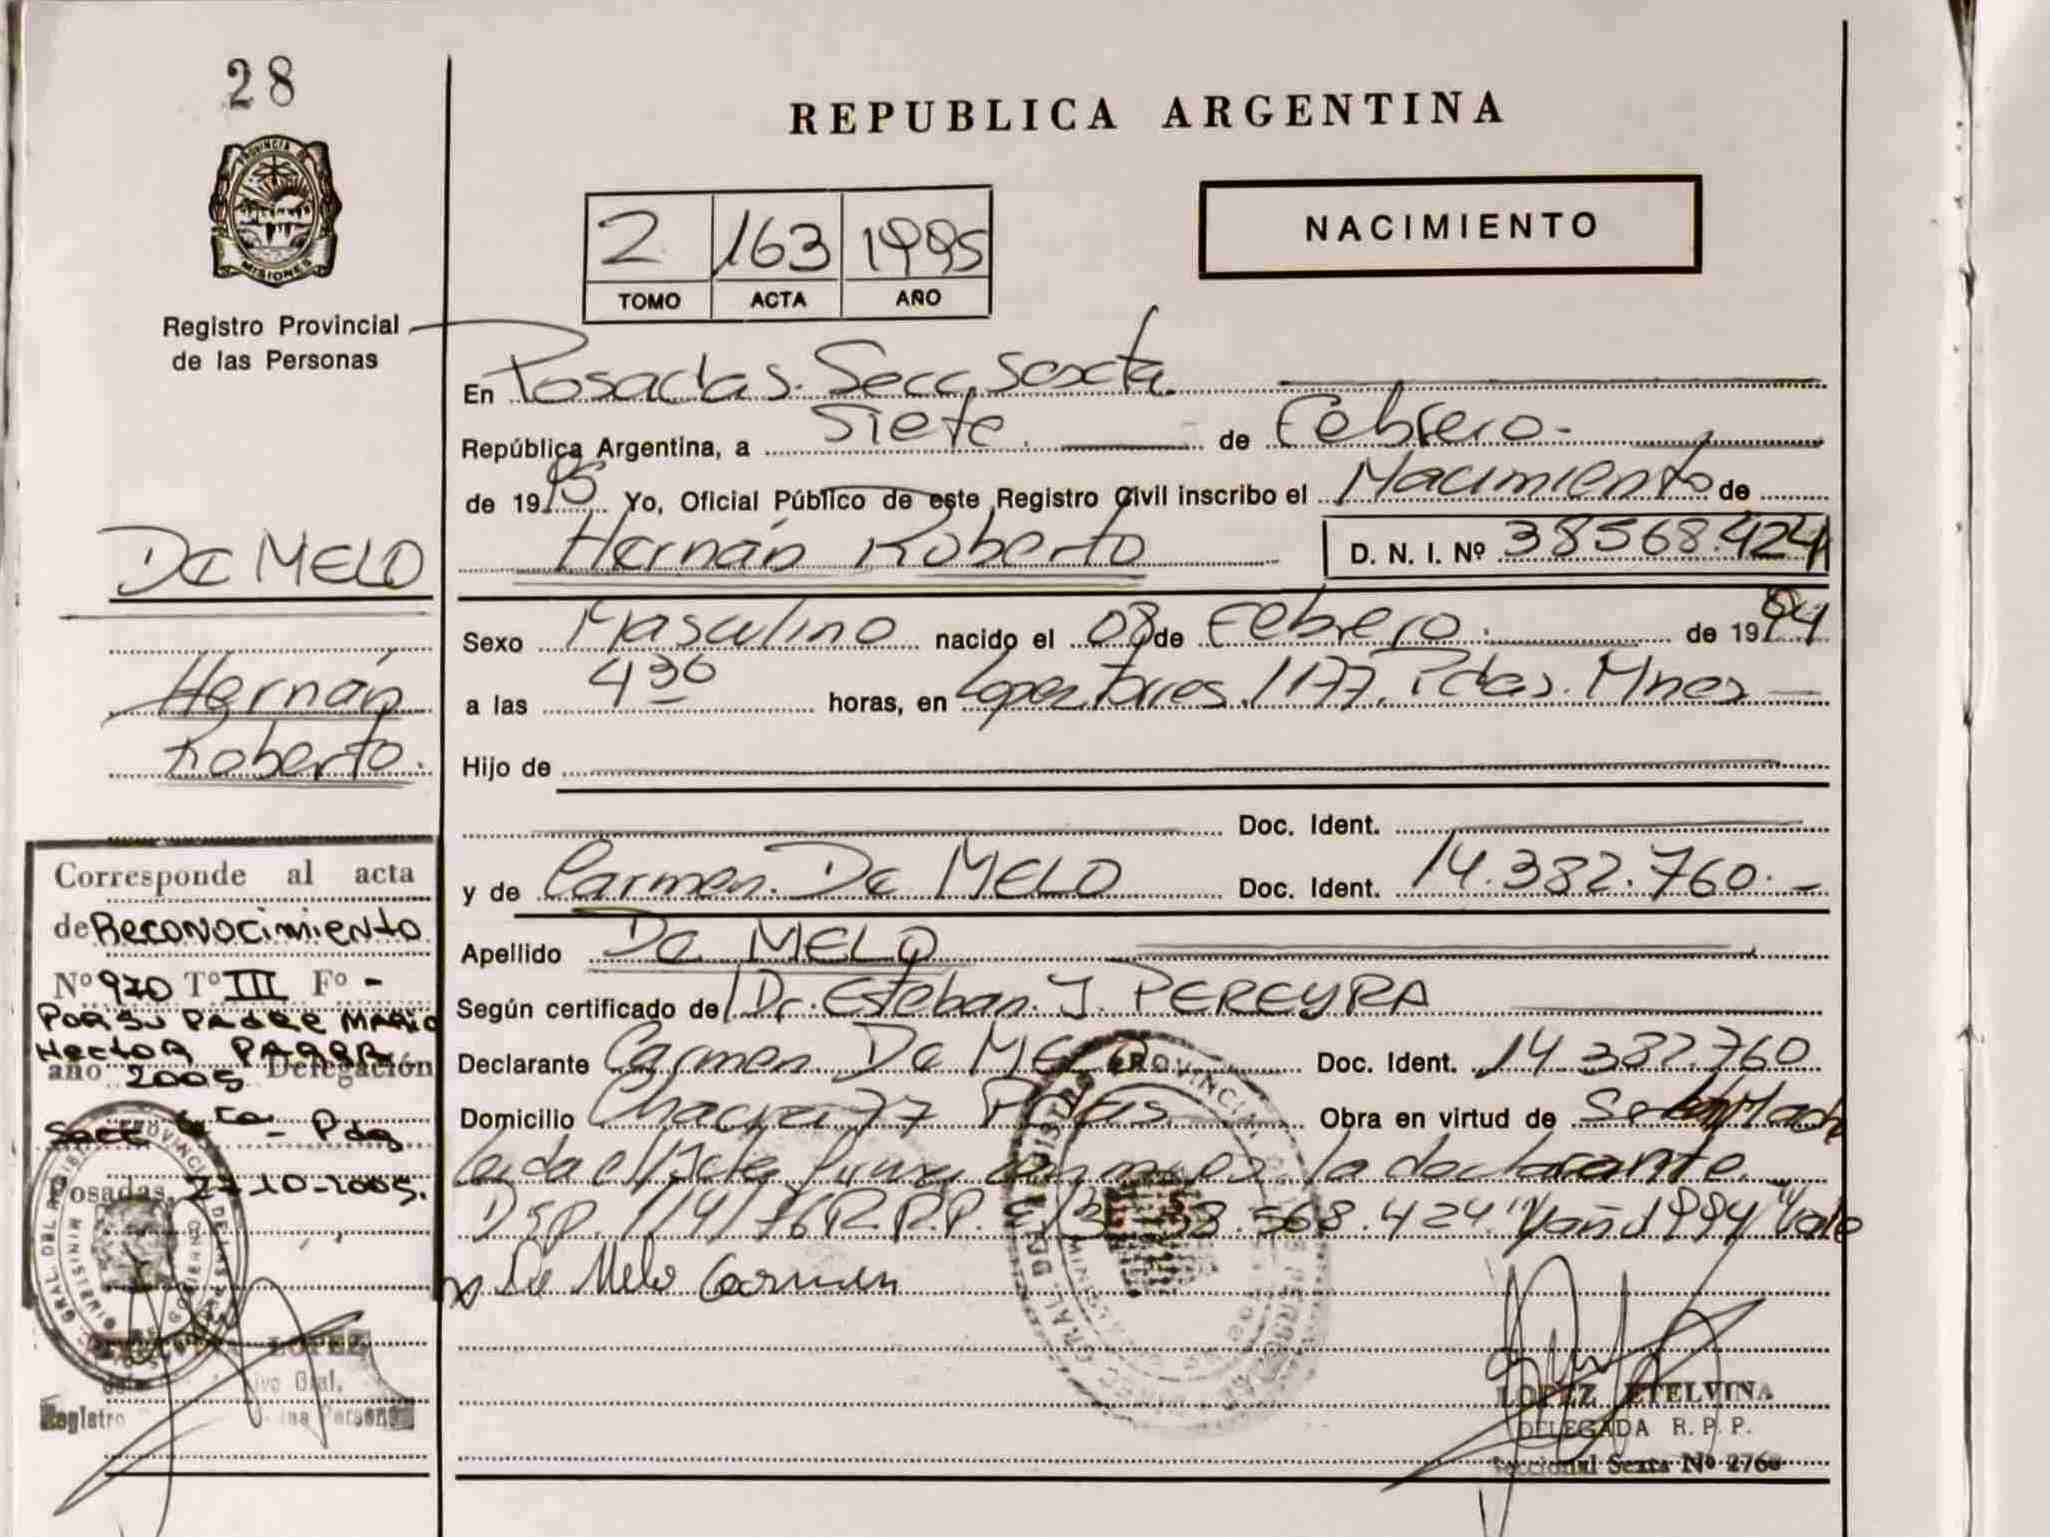 28
REPUBLICA ARGENTINA
PROVINCIA DE
MISIONES
Registro Provincial
de las Personas
NACIMIENTO
2 163 1995
TOMO ACTA AÑO
En Posadas. Secc. Sexta
República Argentina, a Siete de Febrero.
de 1995 Yo, Oficial Público de este Registro Civil inscribo el Nacimiento de
Hernán Roberto D. N. I. Nº 38568.424
De MELO
Hernán
Roberto.
Sexo Masculino nacido el 08 de Febrero. de 1994
a las 4 30 horas, en Lopez Torres. 1177. Pdas. Mnes
Hijo de
Doc. Ident.
y de Carmen. De MELO Doc. Ident. 14.382.760.
Apellido De MELO
Según certificado de Dr. Esteban. J. PEREYRA
Declarante Carmen. De MELO Doc. Ident. 14.382.760
Domicilio Chacra 77 Obra en virtud de
Leida el Acta la declarante.
Disp. 1/4/76 R.R.P. 38.568.424 1994 Vale
De Melo Carmen
LOPEZ ETELVINA
DELEGADA R. P. P.
Seccional Sexta Nº 2768
Corresponde al acta
de Reconocimiento
Nº 970 Tº III Fº -
POR SU PADRE MARIO
Hector
año 2005 Delegación
Secc 6ta - Pdas
Posadas, 27-10-2005.
Registro